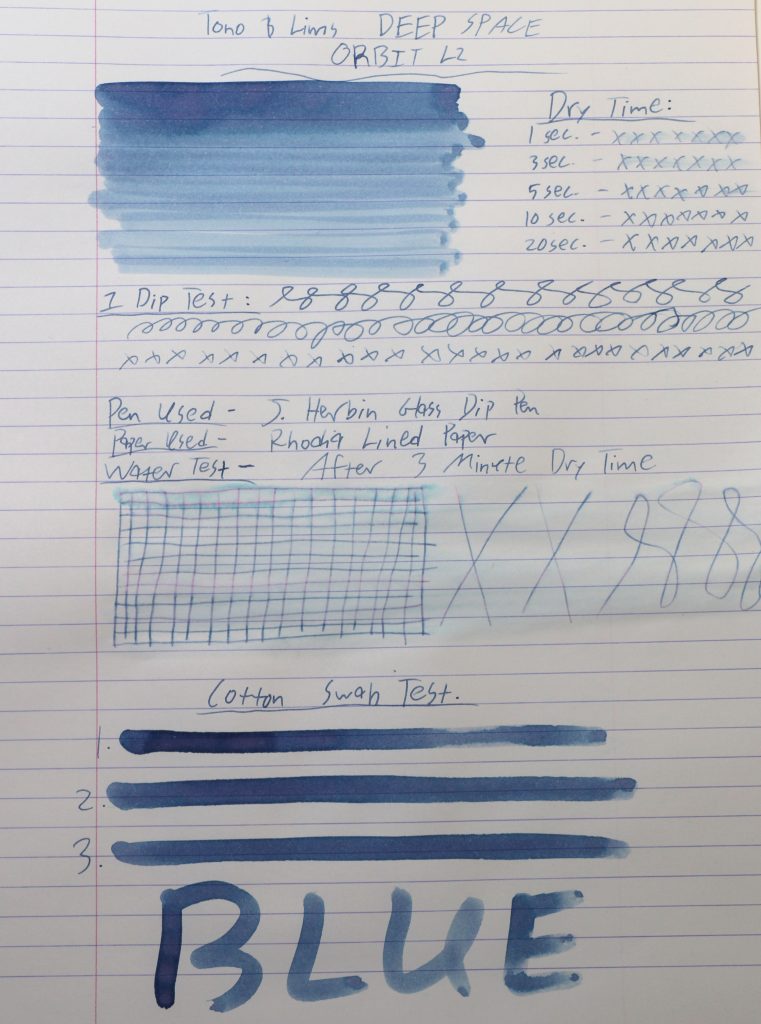 Tono & Lims DEEP SPACE
ORBIT L2
Dry Time:
1 sec. - x x x x x x x
3 sec. - x x x x x x x
5 sec. - x x x x x x x
10 sec. - x x x x x x x
20 sec. - x x x x x x x
1 Dip Test:
Pen Used - J. Herbin Glass Dip Pen
Paper Used - Rhodia Lined Paper
Water Test - After 3 Minute Dry Time
X X
Cotton Swab Test.
1.
2.
3.
BLUE